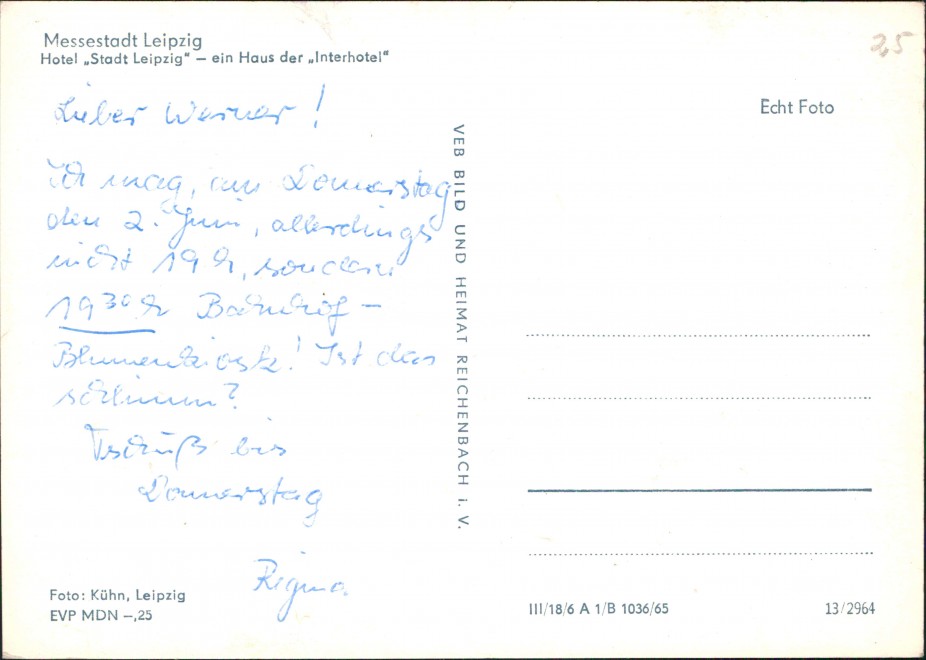 Messestadt Leipzig
Hotel „Stadt Leipzig" – ein Haus der „Interhotel"
2,5
Echt Foto
Lieber Werner!
Ich mag, am Donnerstag
den 2. Juni, allerdings
nicht 19 h, sondern
19³⁰ h Bahnhof –
Blumenkiosk! Ist das
schlimm?
Tschüß bis
Donnerstag
Regina.
VEB BILD UND HEIMAT REICHENBACH i. V.
Foto: Kühn, Leipzig
EVP MDN –,25
III/18/6 A 1/B 1036/65
13/2964